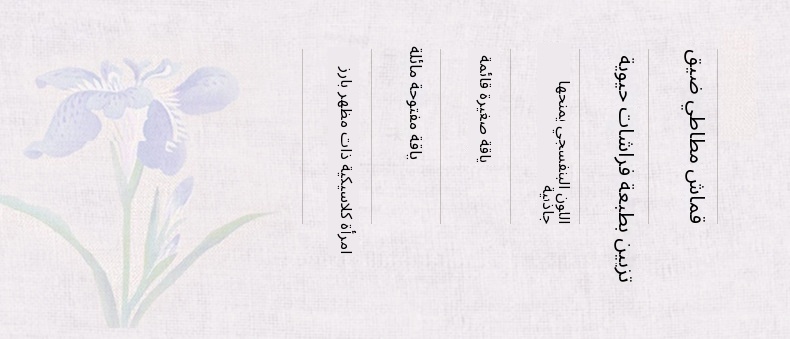 قماش مطاطي ضيق
تزيين بطبعة فراشات حيوية
اللون البنفسجي يمنحها
جاذبية
ياقة صغيرة قائمة
ياقة مفتوحة مائلة
امرأة كلاسيكية ذات مظهر بارز